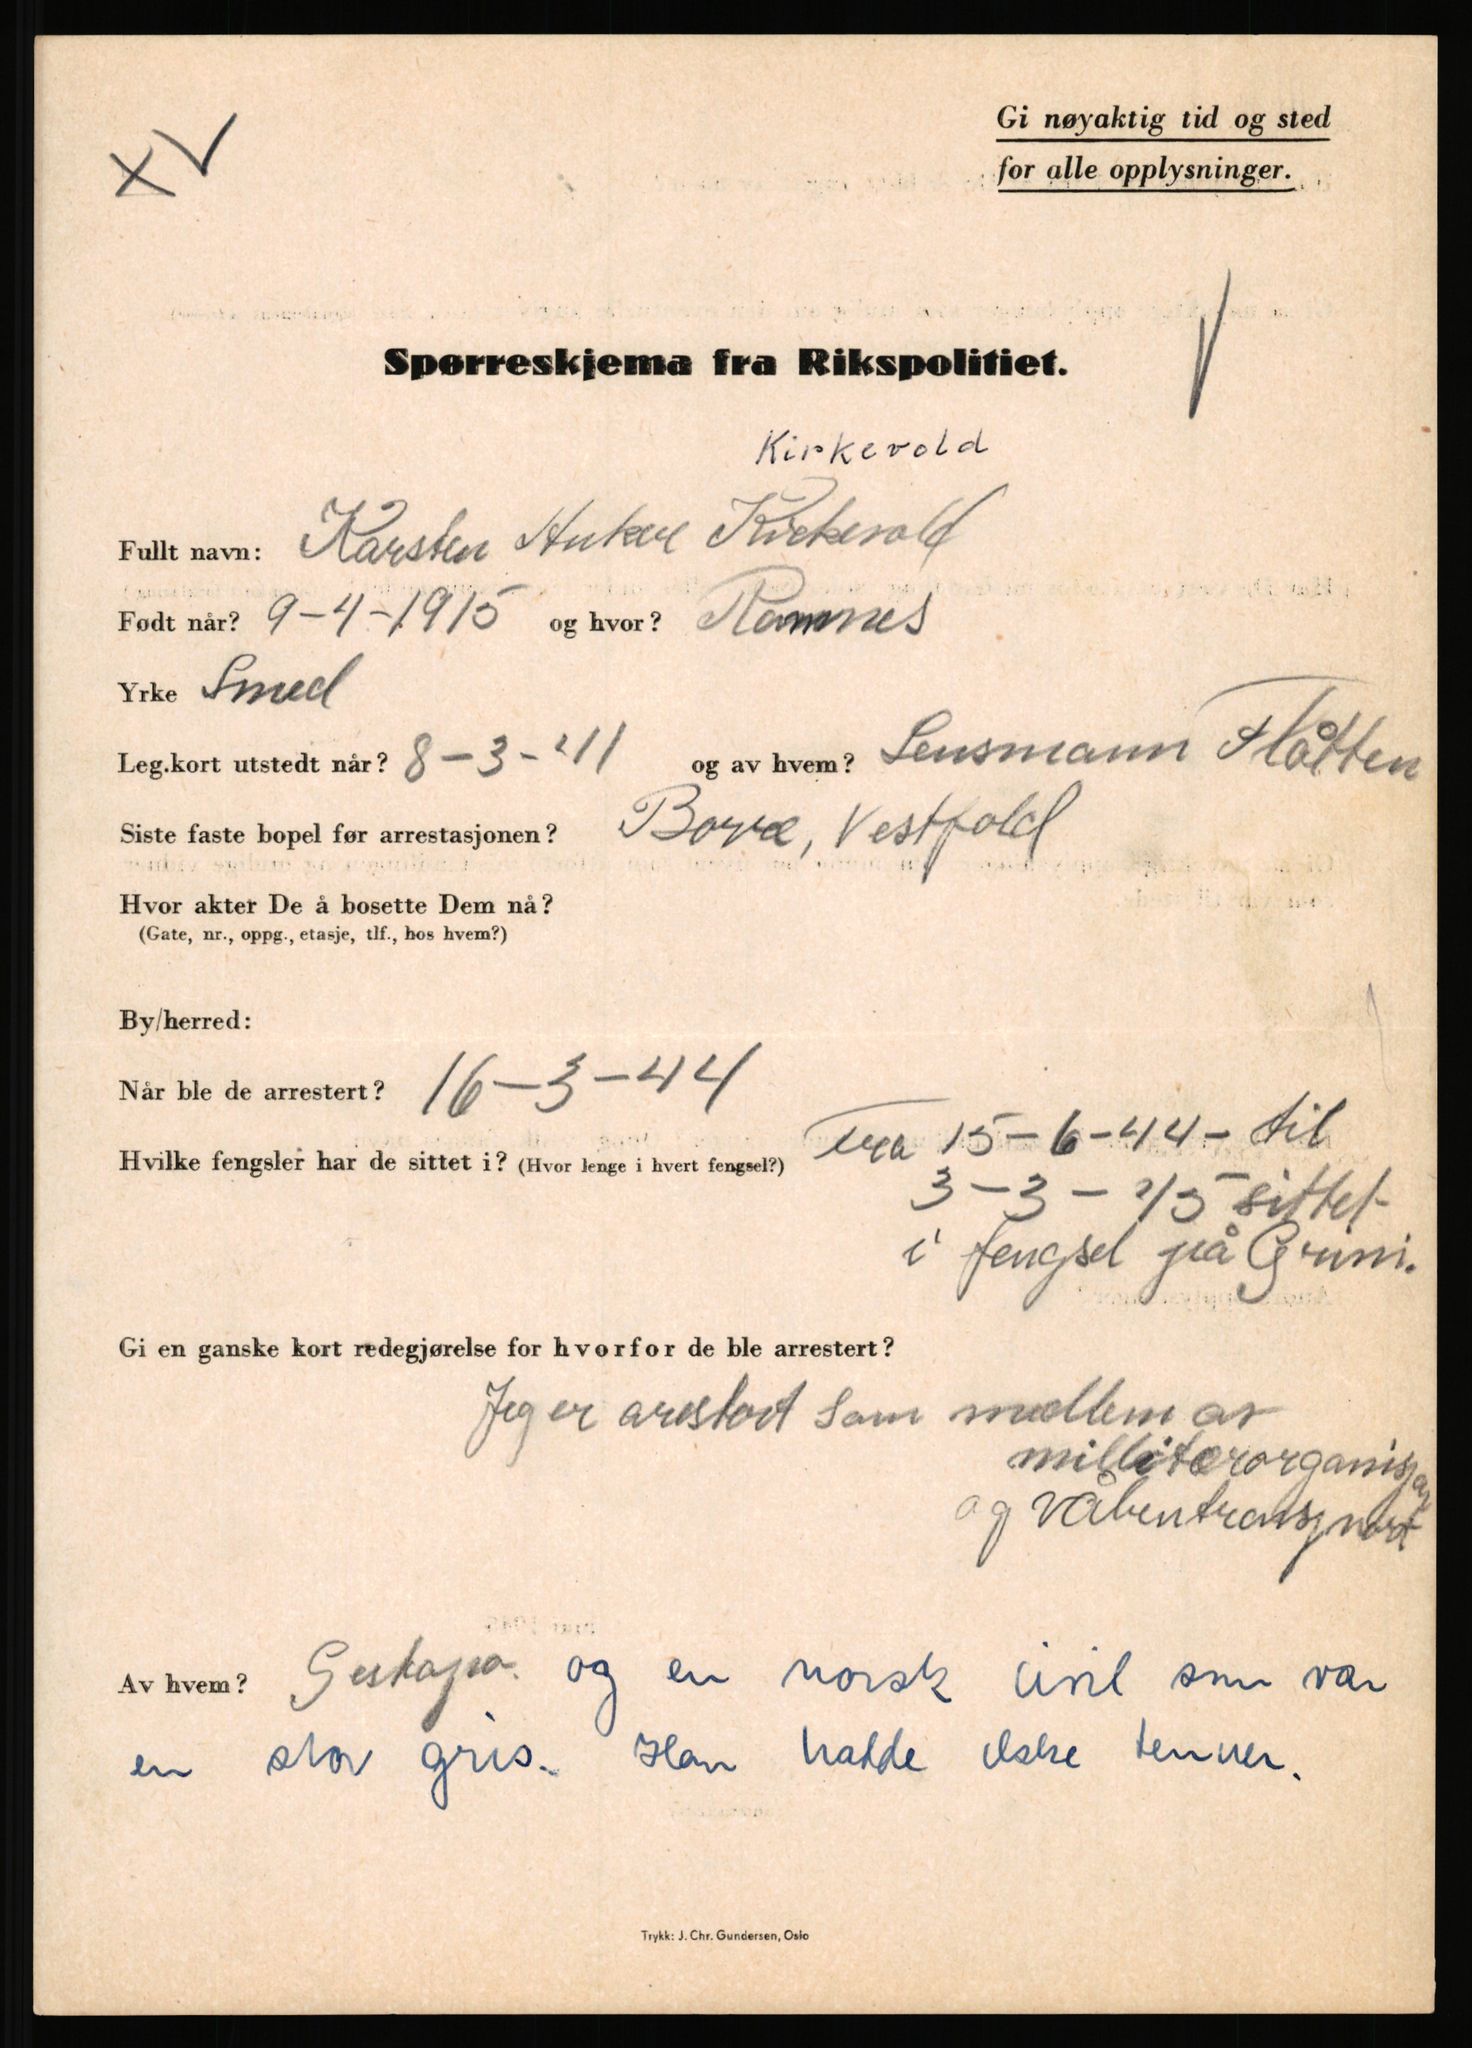 Gi nøyaktig tid og sted
for alle opplysninger.
Spørreskjema fra Rikspolitiet.
Kirkevold
Fullt navn: Karsten Anker Kirkevold
Født når? 9-4-1915 og hvor? Ramnes
Yrke Smed
Leg.kort utstedt når? 8-3-41 og av hvem? Lensmann Flåtten
Siste faste bopel før arrestasjonen? Borre, Vestfold
Hvor akter De å bosette Dem nå?
(Gate, nr., oppg., etasje, tlf., hos hvem?)
By/herred:
Når ble de arrestert? 16-3-44
Hvilke fengsler har de sittet i? (Hvor lenge i hvert fengsel?) Fra 15-6-44- til
3-3-45 sittet
i fengsel på Grini.
Gi en ganske kort redegjørelse for hvorfor de ble arrestert?
Jeg er arestert som medlem av
og våbentransport
Av hvem? Gestapo. og en norsk civil som var
en stor gris. Han hadde ikke tenner.
Trykk: J. Chr. Gundersen, Oslo